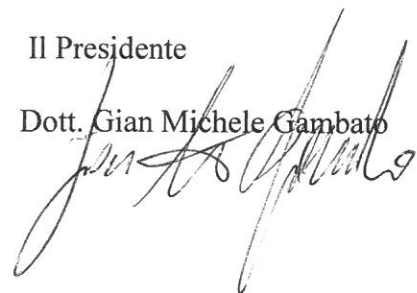 Il Presidente
Dott. Gian Michele Gambato